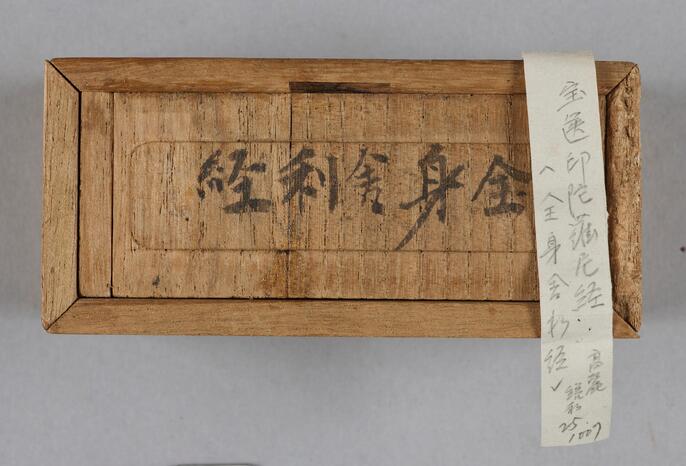 全身舎利経
宝篋印陀羅尼経‥高麗
(全身舎利経)
統和
25
1007